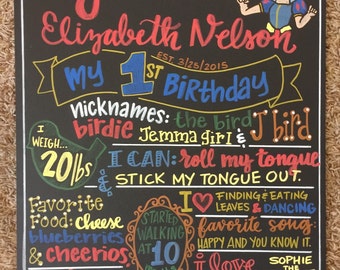 Elizabeth Nelson
EST. 3/25/2015
my 1st Birthday
nicknames: the bird
birdie Jemma girl & J bird
I WEIGH... 20 lbs
I CAN: roll my tongue
& STICK MY TONGUE OUT.
I ♥ FINDING & EATING LEAVES & DANCING
Favorite Food: cheese blueberries & cheerios
STARTED WALKING AT 10
favorite song: HAPPY AND YOU KNOW IT.
i love SOPHIE THE